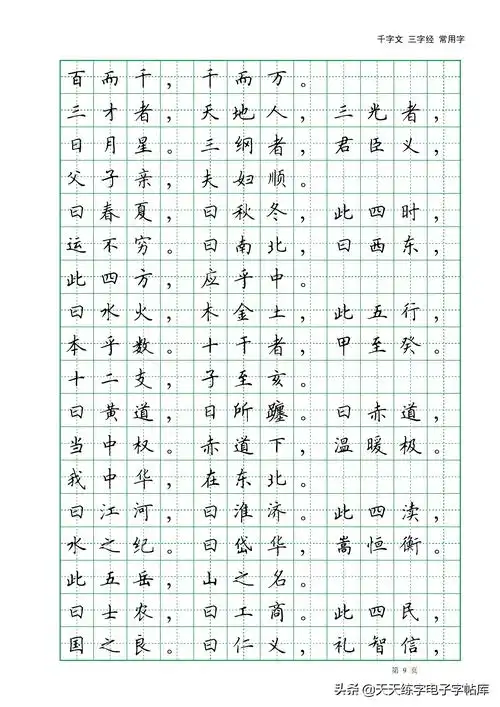 千字文 三字经 常用字
百而千，千而万。
三才者，天地人，三光者，
日月星。三纲者，君臣义，
父子亲，夫妇顺。
曰春夏，曰秋冬，此四时，
运不穷。曰南北，曰西东，
此四方，应乎中。
曰水火，木金土，此五行，
本乎数。十干者，甲至癸。
十二支，子至亥。
曰黄道，日所躔。曰赤道，
当中权。赤道下，温暖极。
我中华，在东北。
曰江河，曰淮济。此四渎，
水之纪。曰岱华，嵩恒衡。
此五岳，山之名。
曰士农，曰工商。此四民，
国之良。曰仁义，礼智信，
第 9 页
头条 @天天练字电子字帖库